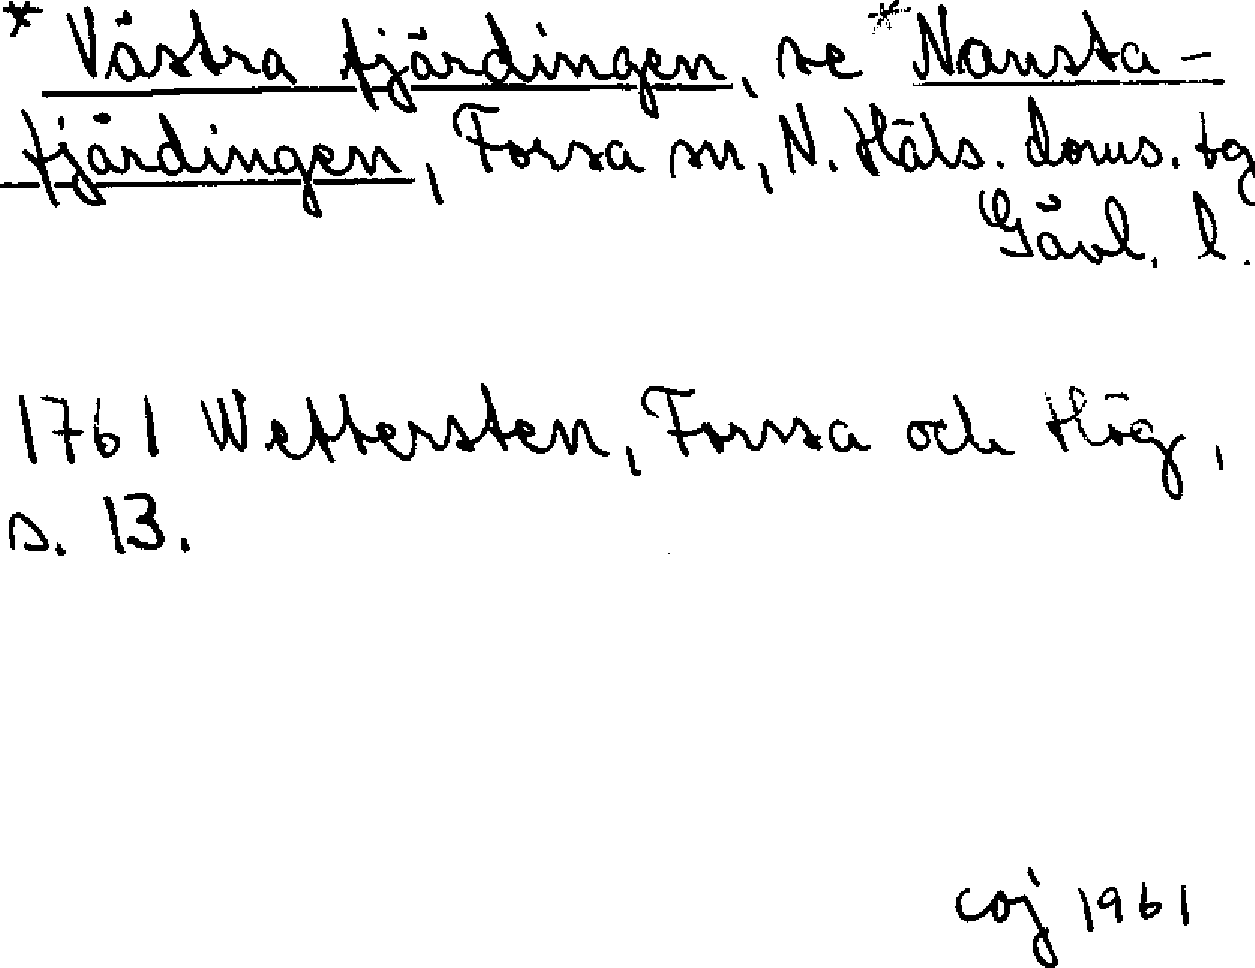 * Västra fjärdingen, se * Nansta-
fjärdingen, Forsa sn, N. Häls. doms. tg
Gävl. l.
1761 Wettersten, Forssa och Hög,
s. 13.
coj 1961